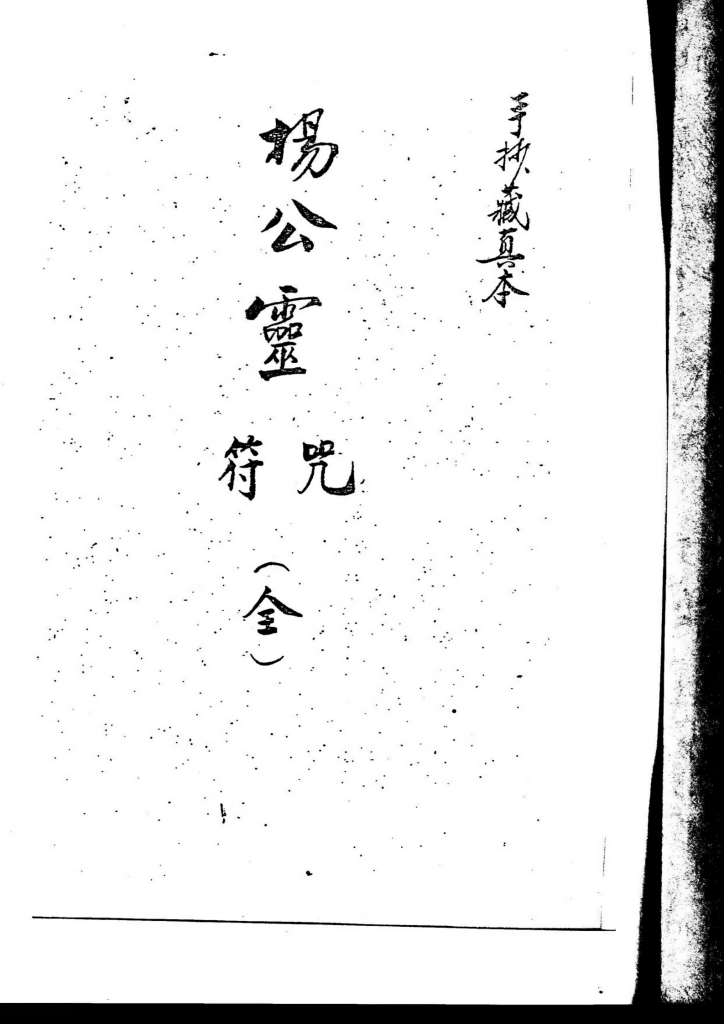 手抄藏真本
楊公靈
符咒
（全）